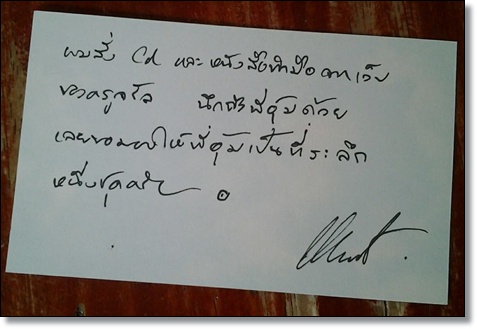 ผมสั่ง Cd และหนังสือทำมือจากเว็บ
ของครูจรัล นึกถึงพี่ตุ้มด้วย
เลยขอมอบให้พี่ตุ้มเป็นที่ระลึก
หนึ่งชุดครับ